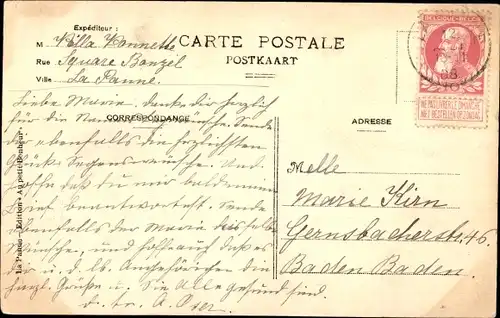 Expéditeur :
M Villa Nonnette
Rue Square Bonzel
Ville La Panne.
CARTE POSTALE
POSTKAART
BELGIQUE·BELGIË
NE PAS LIVRER LE DIMANCHE
NIET BESTELLEN OP ZONDAG
CORRESPONDANCE
ADRESSE
Liebe Marie, danke dir herzlich
für die Sende
dir ebenfalls die herzlichsten
Glück- Segenswünsche. Und
hoffe daß du mir baldmen
Brief beantwortest. Sende
ebenfalls der Maria
Wünsche, und hoffe auch daß es
dir u. d. lb. Angehörigen
herzl. Grüße u. Sie Alle gesund sind.
d. tr. A.
Melle
Marie Kirn
Gernsbacherstr. 46
Baden Baden.
La Panne - Edition « Au petit Bonheur »